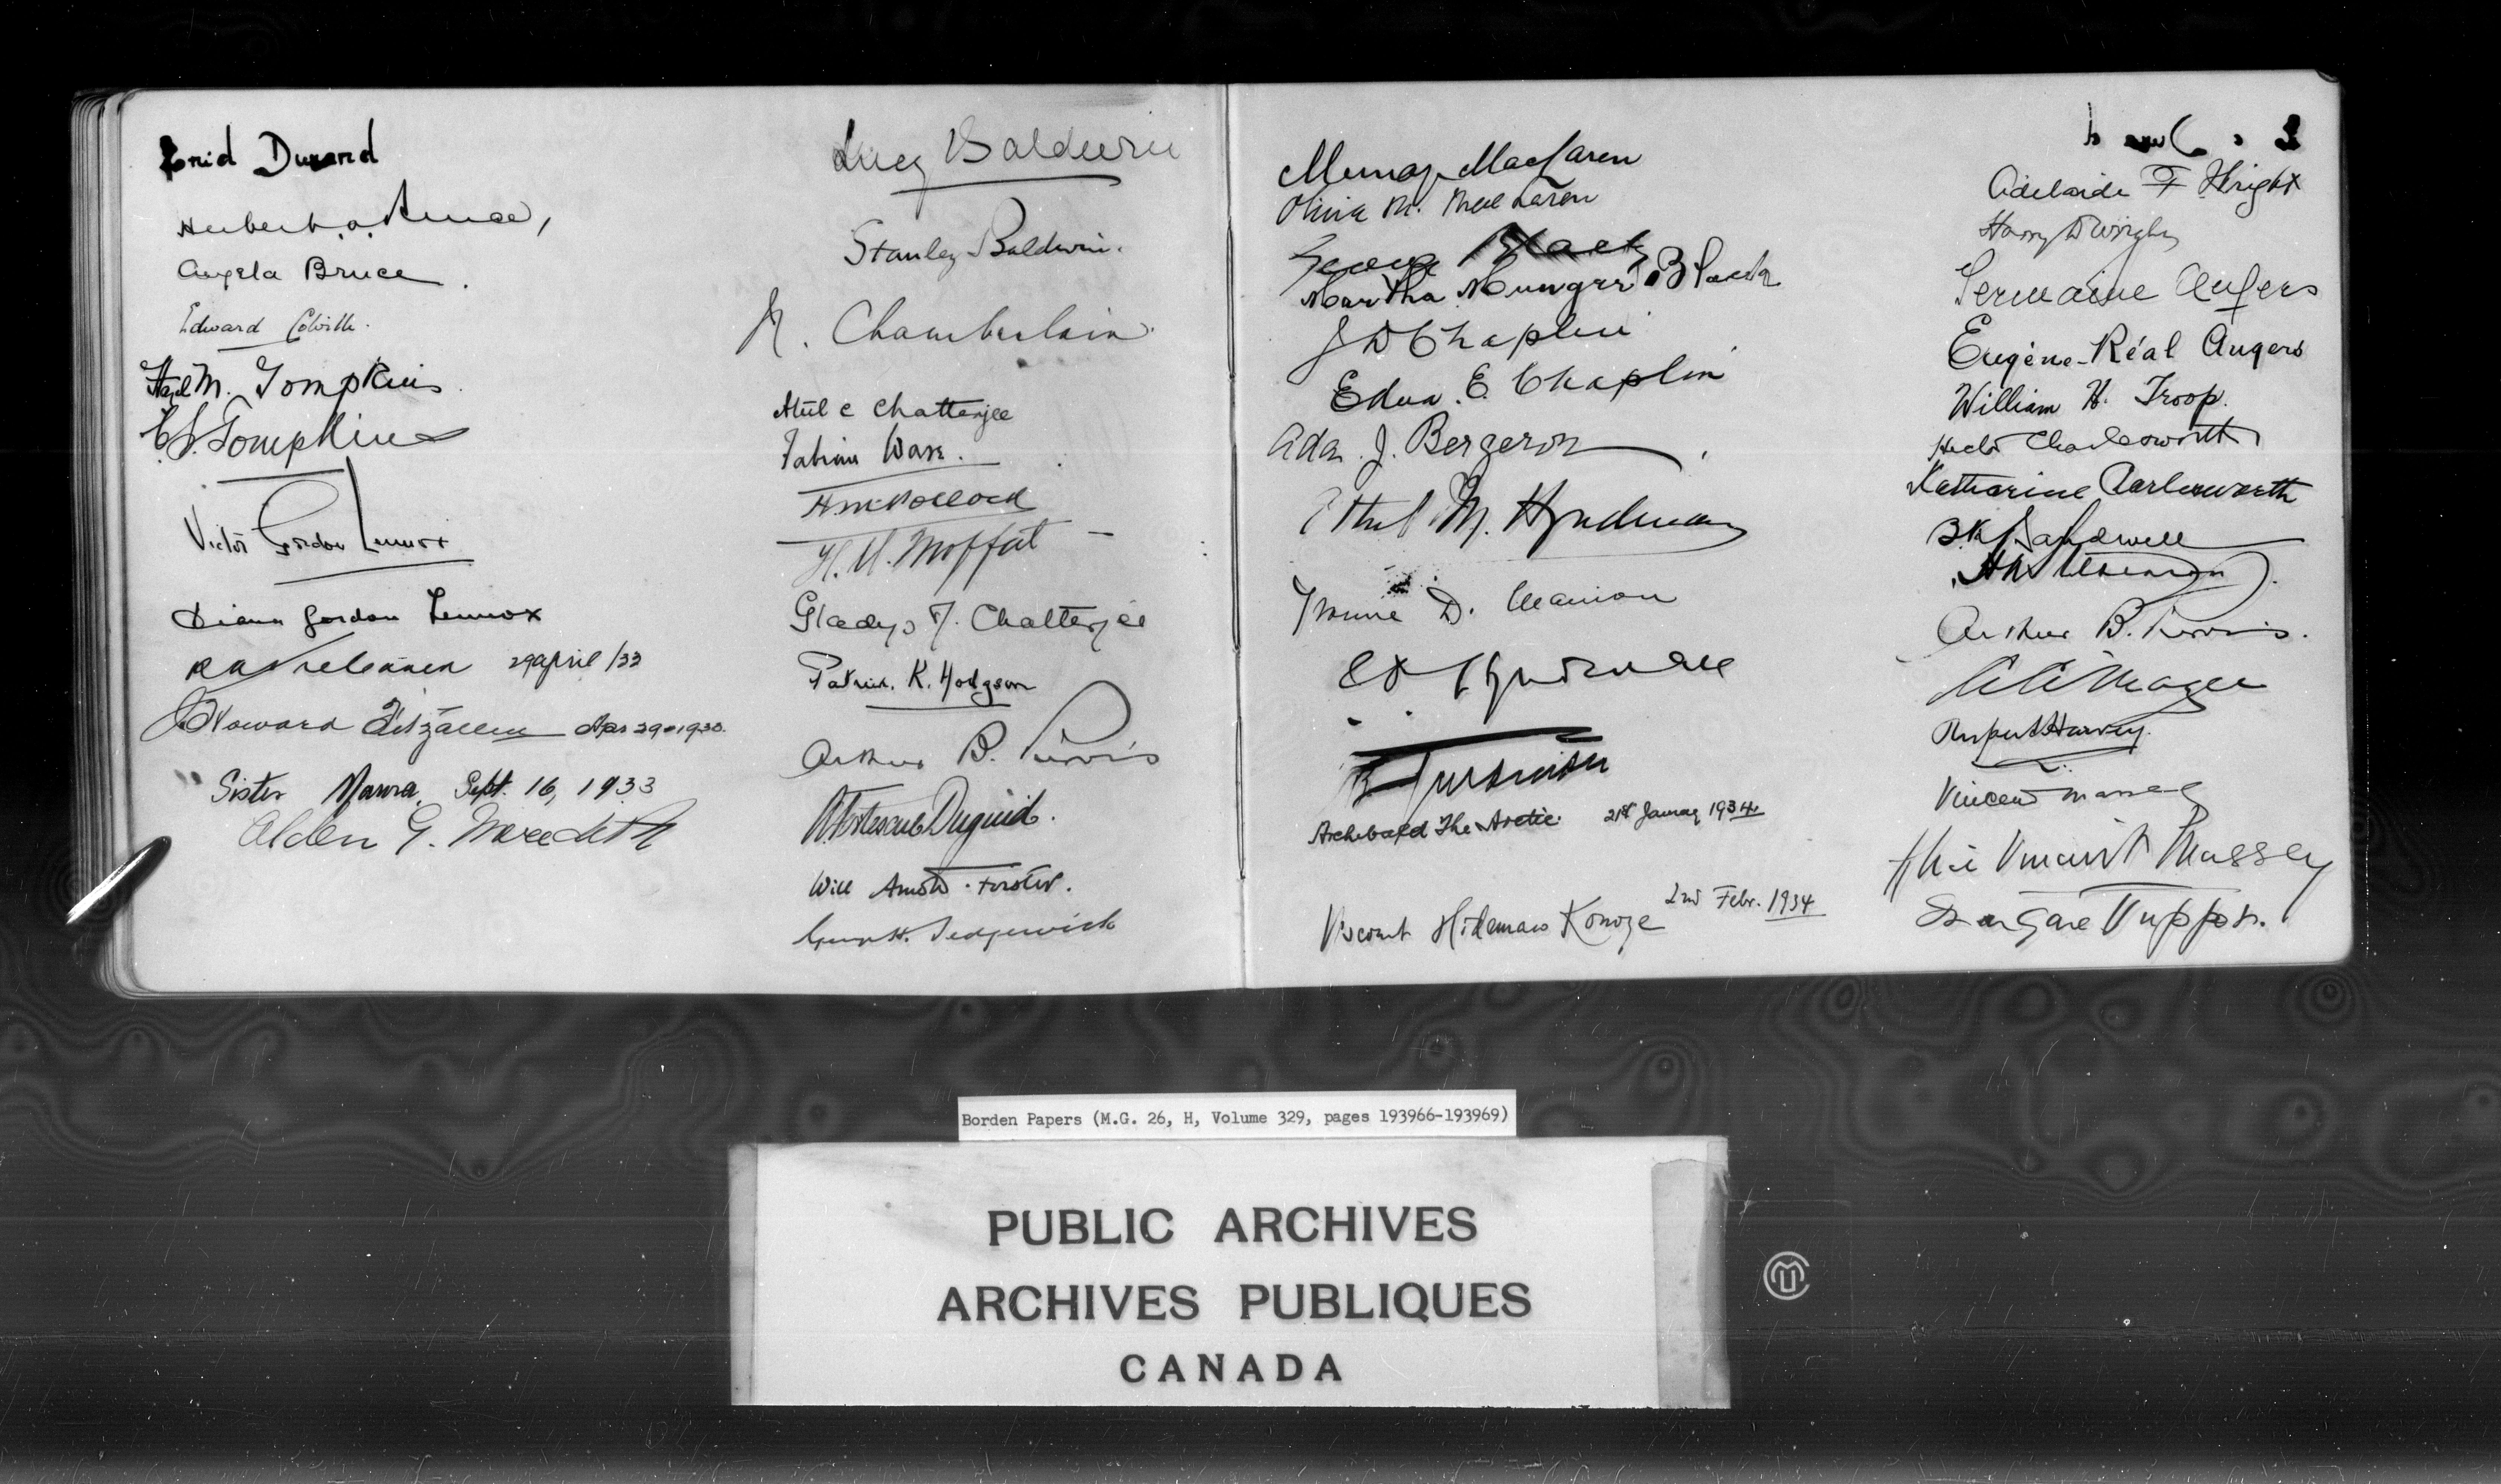 Enid Durand
Herbert
Angela Bruce
Edward Colville
Hazel M. Tompkins
Tompkins
Victor Gordon Lennox
Diana Gordon Lennox
29 April /33
Howard Fitzallen Apr 29-1933.
Sister Maura, Sept. 16, 1933
Alden G. Meredith
Lucy Baldwin
Stanley Baldwin.
N. Chamberlain
Atul C Chatterjee
Fabian Ware.
H M Pollock
H. U. Moffat
Gladys M. Chatterjee
Patrick K. Hodgson
Arthur B. Purvis
A. Fortescue Duguid.
Will Arnold-Forster.
Sedgewick
Murray MacLaren
Olivia M. MacLaren
George Black
Martha Munger Black
J D Chaplin
Edna. E. Chaplin
Ada. J. Bergeron
Ethel M. Hyndman
Yvonne D. Manion
Archibald The Arctic. 21st January 1934
Viscount Hidemaro Konoye 2nd Febr. 1934
Adelaide F Wright
Harry D Wright
Germaine Angers
Eugène-Réal Angers
William H. Troop.
Hector Charlesworth
Katharine Charlesworth
B K Sandwell
Arthur B. Purvis.
Magee
Rupert Harvey.
Vincent Massey
Alice Vincent Massey
Margaret Tupper.
Borden Papers (M.G. 26, H, Volume 329, pages 193966-193969)
PUBLIC ARCHIVES
ARCHIVES PUBLIQUES
CANADA